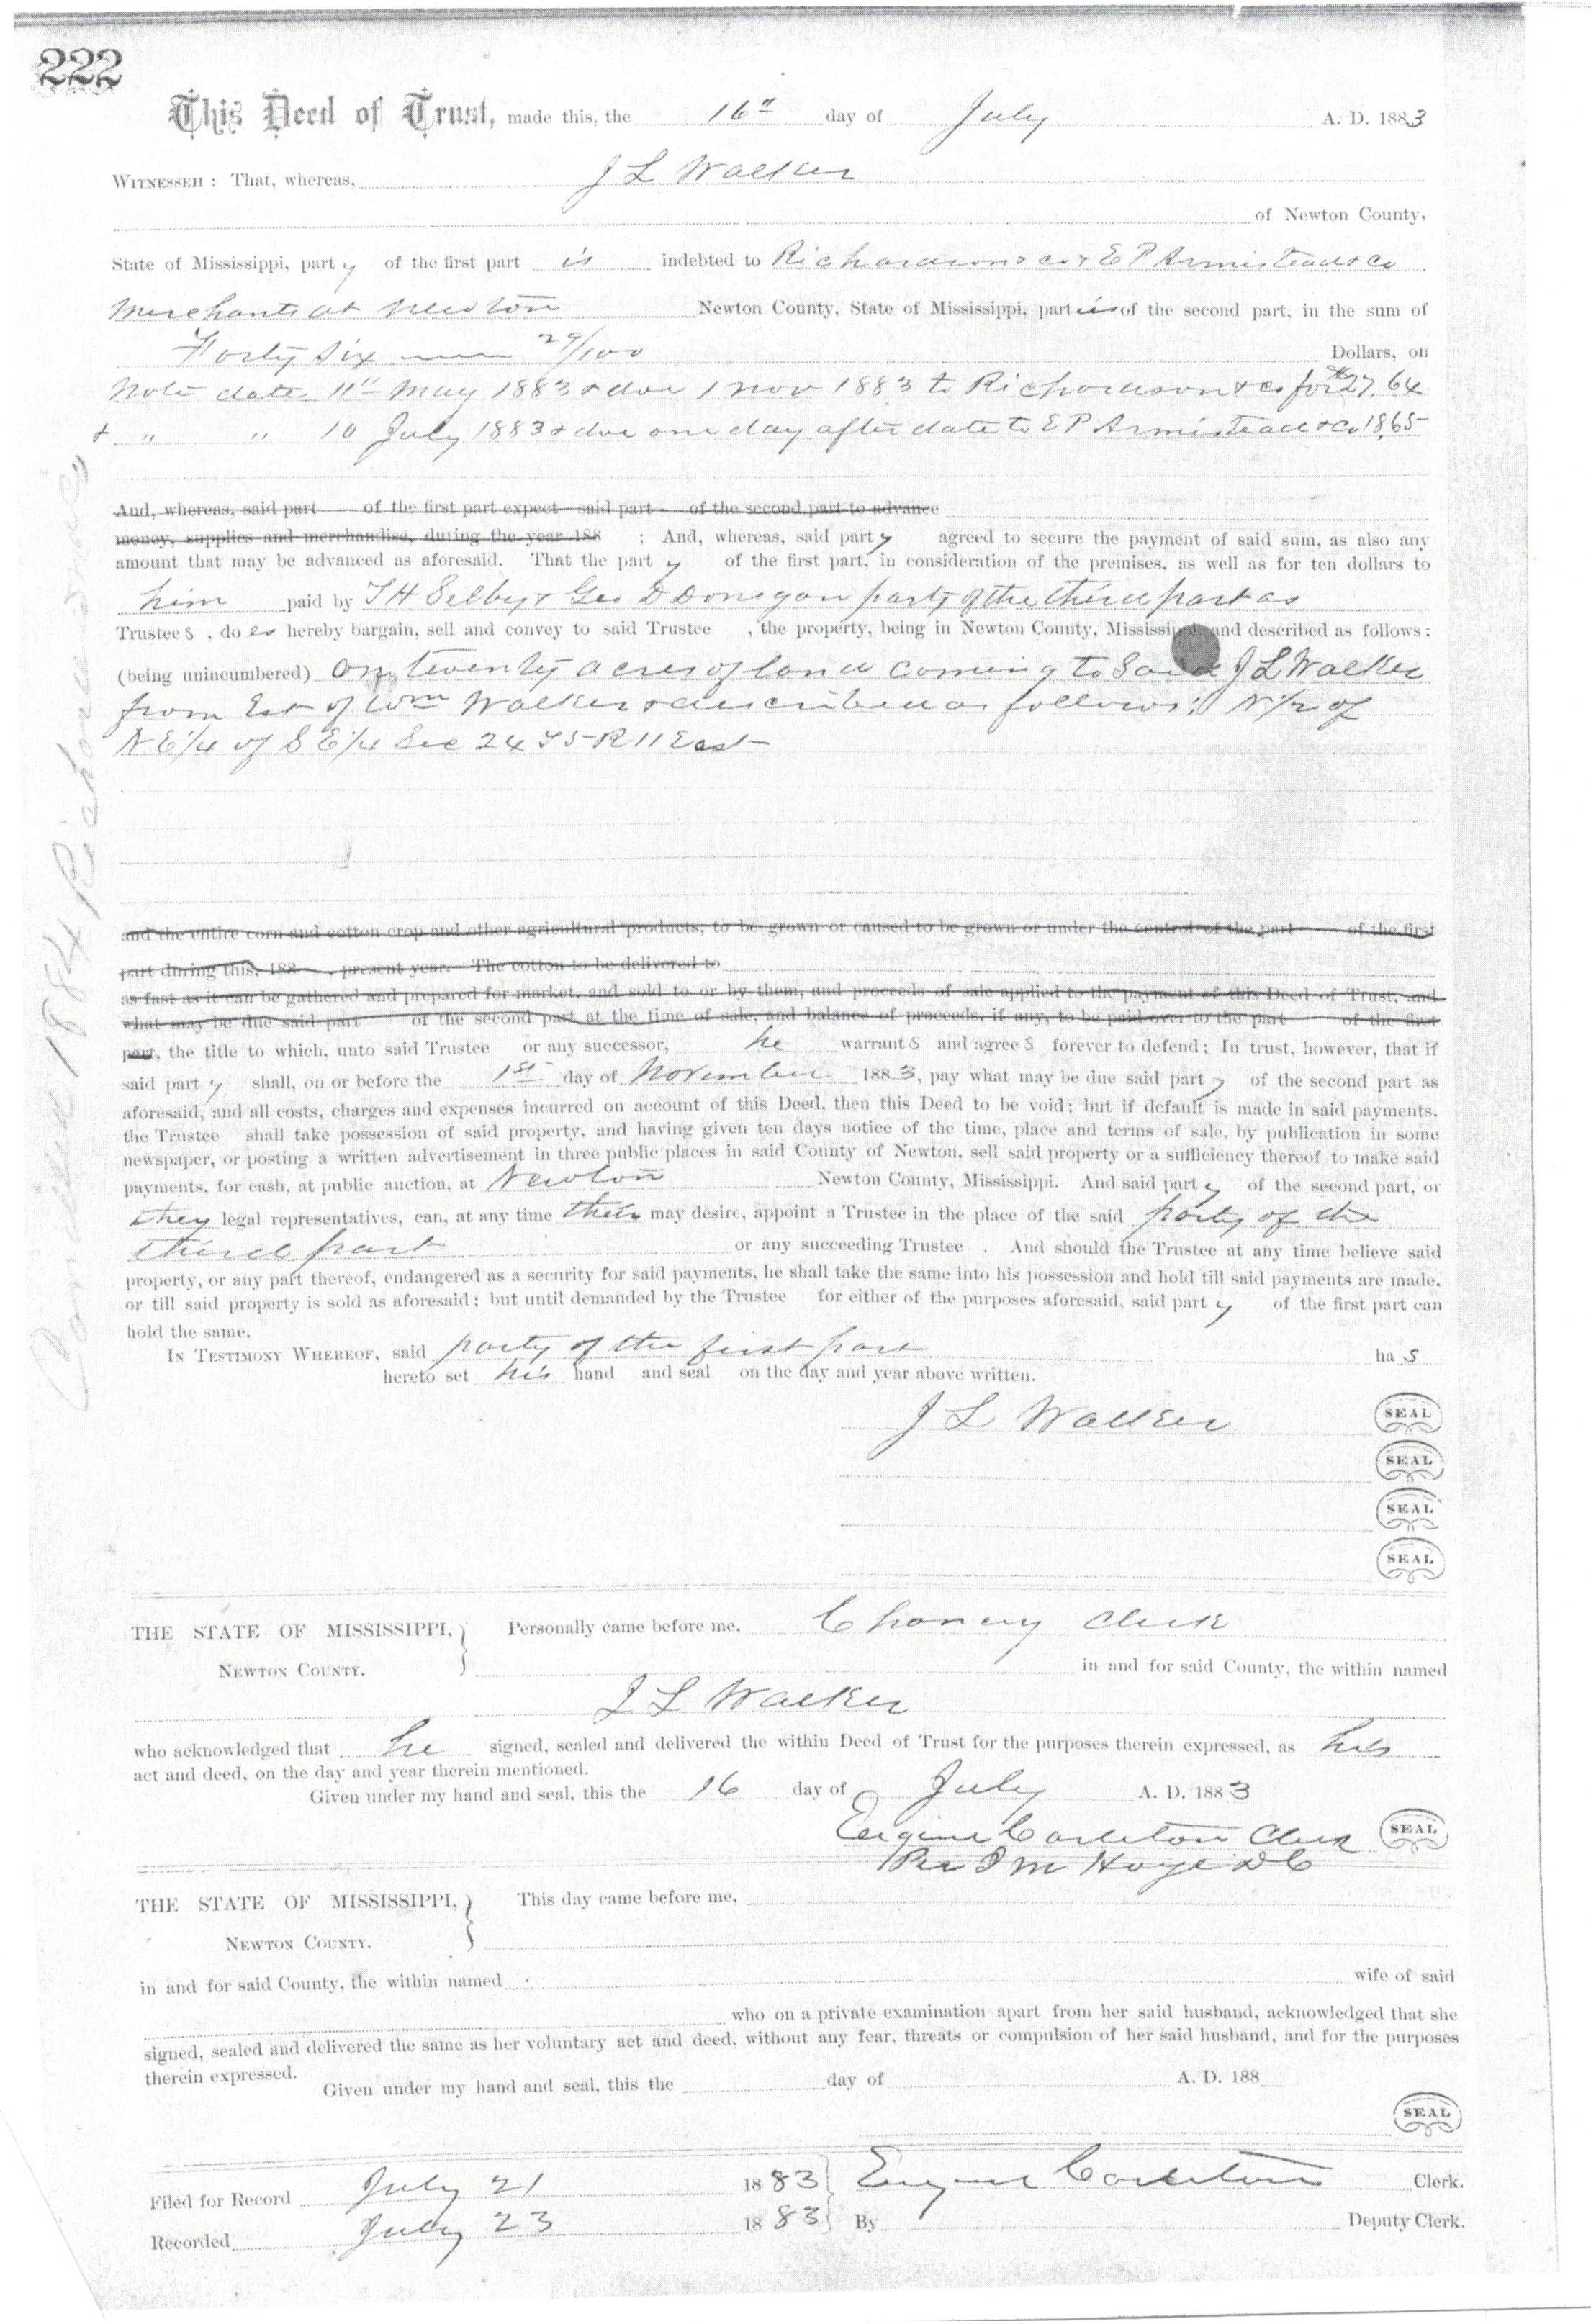 222
This Deed of Trust, made this, the 16" day of July A. D. 1883
WITNESSEH : That, whereas, J L Walker
of Newton County,
State of Mississippi, party of the first part is indebted to Richardson & co & E P Armistead & Co
Merchants at Newton Newton County, State of Mississippi, parties of the second part, in the sum of
Forty Six 29/100 Dollars, on
Note date 11" May 1883 & due 1 Nov 1883 to Richardson & co for $27.64
& " " 10 July 1883 & due one day after date to E P Armistead & Co 18,65
And, whereas, said part of the first part expect said part of the second part to advance
money, supplies and merchandise, during the year 188 ; And, whereas, said party agreed to secure the payment of said sum, as also any
amount that may be advanced as aforesaid. That the party of the first part, in consideration of the premises, as well as for ten dollars to
him paid by T H Selby & Geo D Donegan party of the third part as
Trustees, does hereby bargain, sell and convey to said Trustee , the property, being in Newton County, Mississippi and described as follows:
(being unincumbered) On twenty acres of land coming to Said J L Walker
from Est of Wm Walker & described as follows: N 1/2 of
N E 1/4 of S E 1/4 Sec 24 T 5 R 11 East
and the entire corn and cotton crop and other agricultural products, to be grown or caused to be grown or under the control of the part of the first
part during this, 188 , present year. The cotton to be delivered to
as fast as it can be gathered and prepared for market, and sold to or by them, and proceeds of sale applied to the payment of this Deed of Trust, and
what may be due said part of the second part at the time of sale, and balance of proceeds, if any, to be paid over to the part of the first
part, the title to which, unto said Trustee or any successor, he warrants and agrees forever to defend; In trust, however, that if
said party shall, on or before the 1st day of November 1883, pay what may be due said party of the second part as
aforesaid, and all costs, charges and expenses incurred on account of this Deed, then this Deed to be void; but if default is made in said payments,
the Trustee shall take possession of said property, and having given ten days notice of the time, place and terms of sale, by publication in some
newspaper, or posting a written advertisement in three public places in said County of Newton, sell said property or a sufficiency thereof to make said
payments, for cash, at public auction, at Newton Newton County, Mississippi. And said party of the second part, or
they legal representatives, can, at any time may desire, appoint a Trustee in the place of the said party of the
third part or any succeeding Trustee . And should the Trustee at any time believe said
property, or any part thereof, endangered as a security for said payments, he shall take the same into his possession and hold till said payments are made,
or till said property is sold as aforesaid; but until demanded by the Trustee for either of the purposes aforesaid, said party of the first part can
hold the same.
IN TESTIMONY WHEREOF, said party of the first part has
hereto set his hand and seal on the day and year above written.
J L Walker SEAL
SEAL
SEAL
SEAL
THE STATE OF MISSISSIPPI, Personally came before me, Chancy Clerk
NEWTON COUNTY. in and for said County, the within named
J L Walker
who acknowledged that he signed, sealed and delivered the within Deed of Trust for the purposes therein expressed, as his
act and deed, on the day and year therein mentioned.
Given under my hand and seal, this the 16 day of July A. D. 1883
Eugene Carleton Clerk SEAL
Per M Hoye D C
THE STATE OF MISSISSIPPI, This day came before me,
NEWTON COUNTY.
in and for said County, the within named wife of said
who on a private examination apart from her said husband, acknowledged that she
signed, sealed and delivered the same as her voluntary act and deed, without any fear, threats or compulsion of her said husband, and for the purposes
therein expressed.
Given under my hand and seal, this the day of A. D. 188
SEAL
Filed for Record July 21 1883 Eugene Carleton Clerk.
Recorded July 23 1883 By Deputy Clerk.